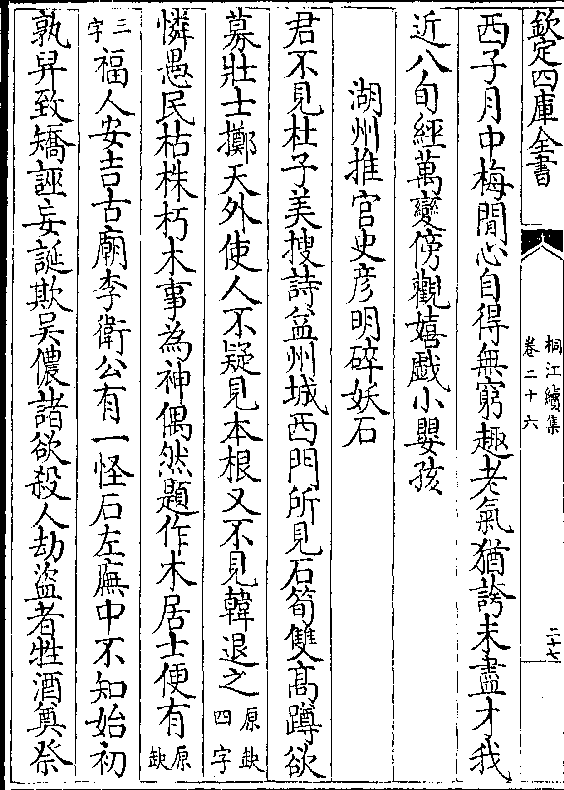 欽定四庫全書
桐江續集
卷二十六
二十七
西子月中梅閒心自得無窮趣老氣猶誇未盡才我
近八旬經萬變傍觀嬉戲小嬰孩
湖州推官史彦明碎妖石
君不見杜子美搜詩益州城西門所見石筍雙髙蹲欲
募壯士擲天外使人不疑見本根又不見韓退之原缺四字
憐愚民枯株朽木事為神偶然題作木居士便有原缺
三字福人安吉古廟李衛公有一怪石左廡中不知始初
孰舁致矯誣妄誕欺吴儂諸欲殺人劫盜者牲酒奠祭